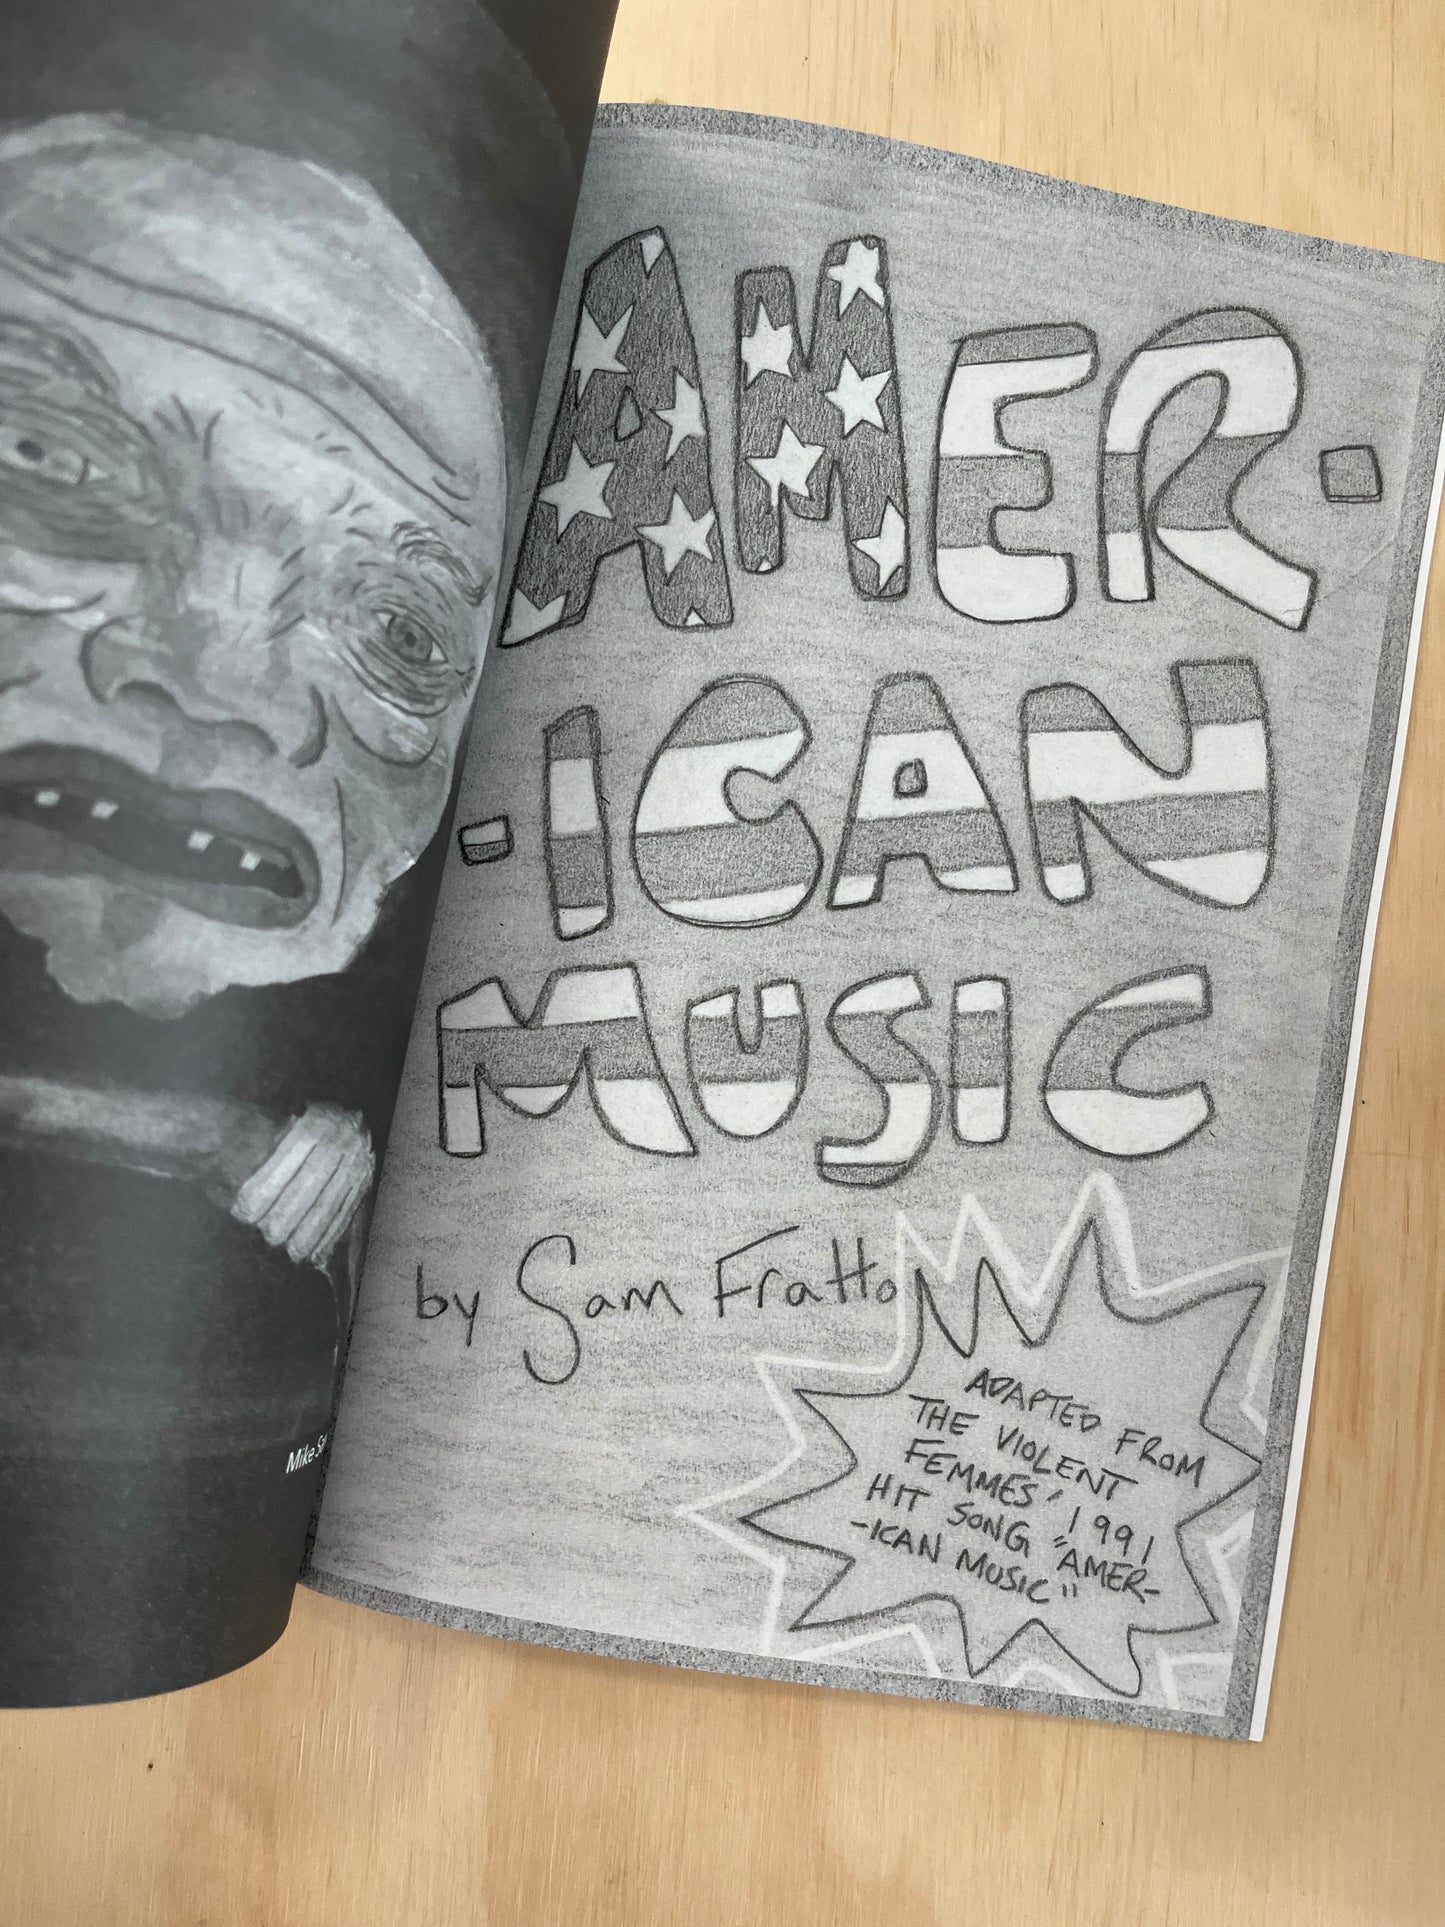 Mike
AMER-
-ICAN
MUSIC
by Sam Fratto
ADAPTED FROM
THE VIOLENT
FEMMES' 1991
HIT SONG "AMER-
-ICAN MUSIC"